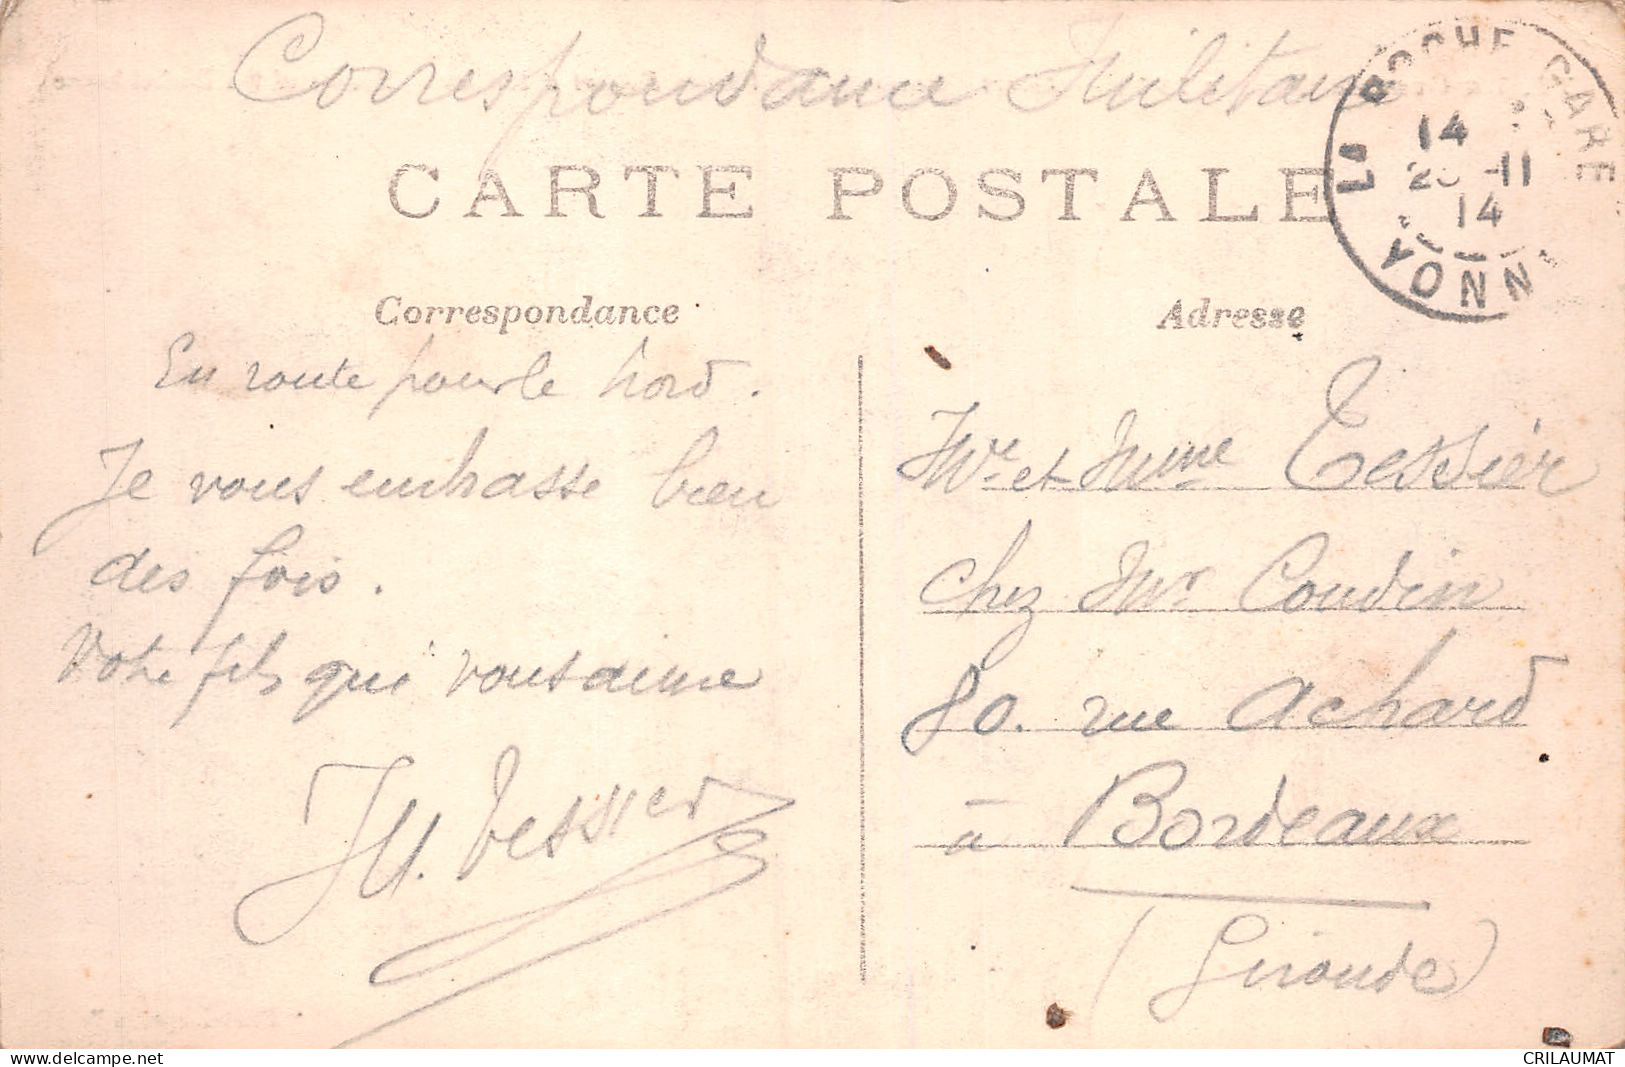 Correspondance Militaire
CARTE POSTALE
LA ROCHE GARE
14
11
14
YONN
Correspondance
En route pour le Nord.
Je vous embrasse bien
des fois.
Votre fils qui vous aime
Tessier
Adresse
Mr et Mme Tessier
chez Mr Coudin
80. rue Achard
à Bordeaux
(Gironde)
CRILAUMAT